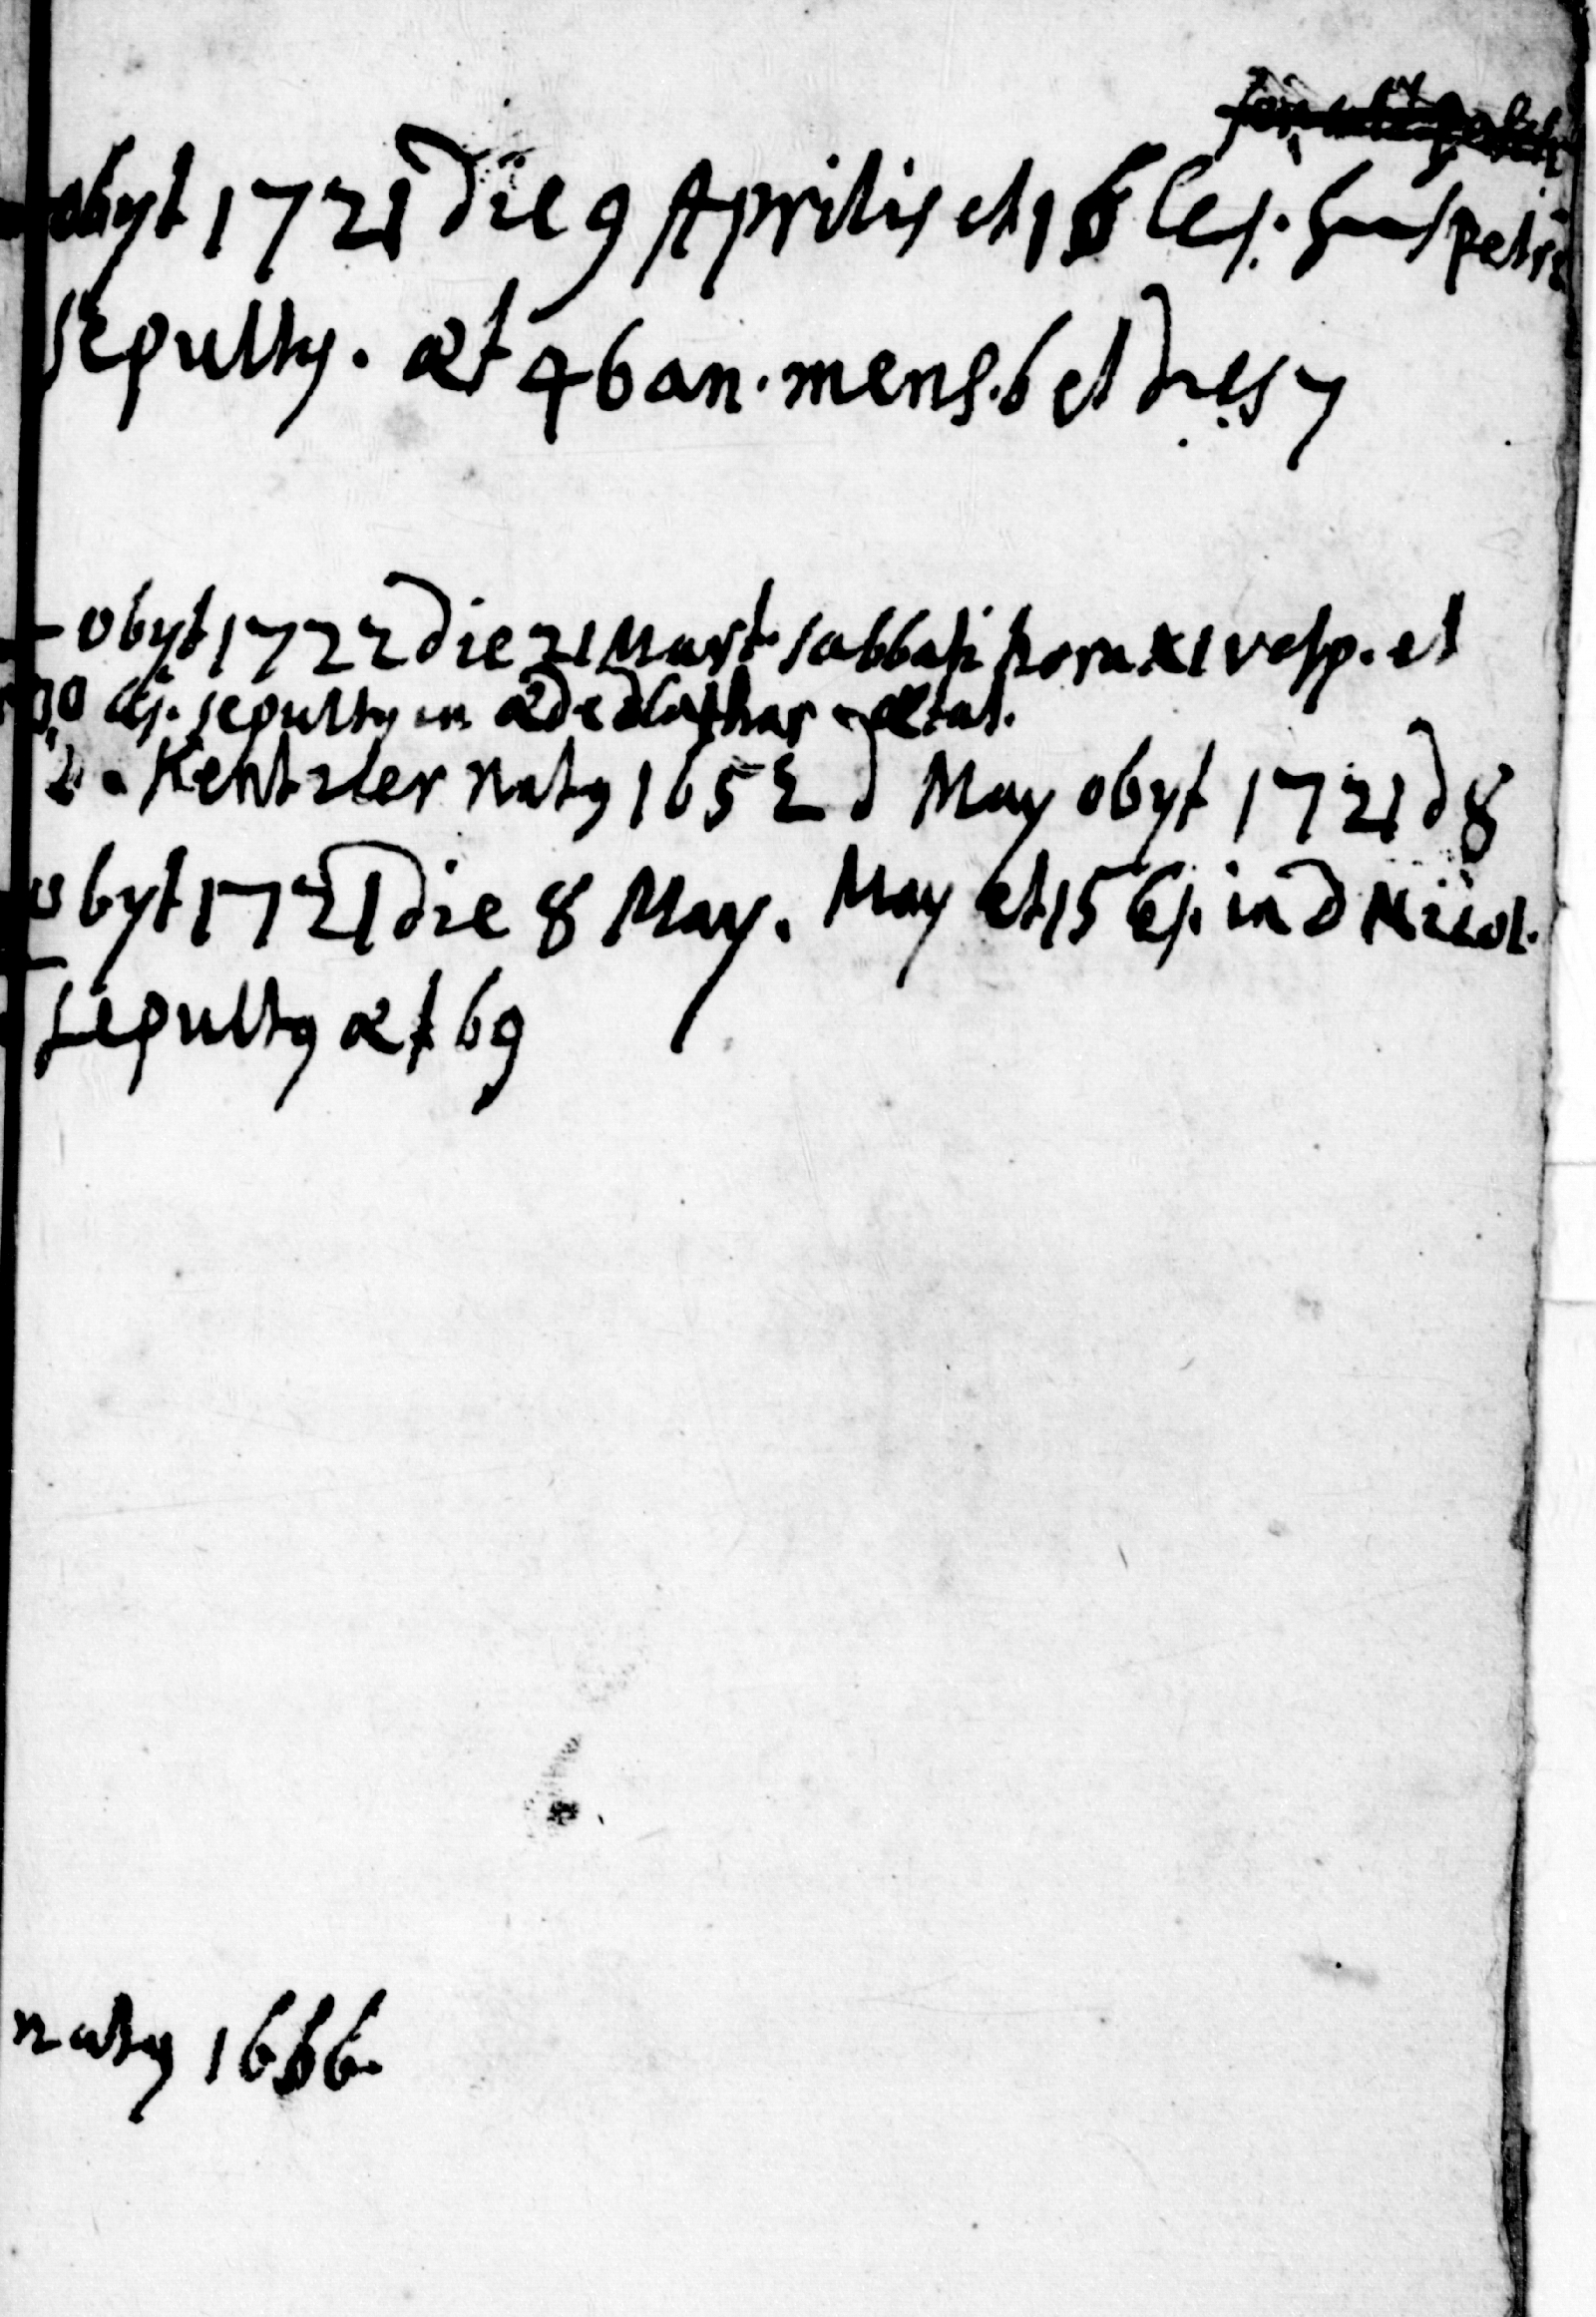 obyt 1721 die 9 Aprilis et 16 ej. Petri
sepultq. æt 46 an. mens. 6 et dies 7
obyt 1722 die 21 Mart. sabbati hora XI vesp. et
30 ej. sepultq in æde d Cathar ætat.
Kentzler natq 1652 d May obyt 1721 d 8
obyt 1721 die 8 May. May et 15 ej. in d Nicol.
sepultq æt 69
natq 1666.